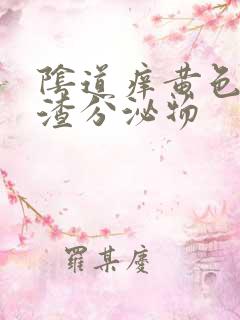 陰道痒黄色
渣分泌物
羅某慶